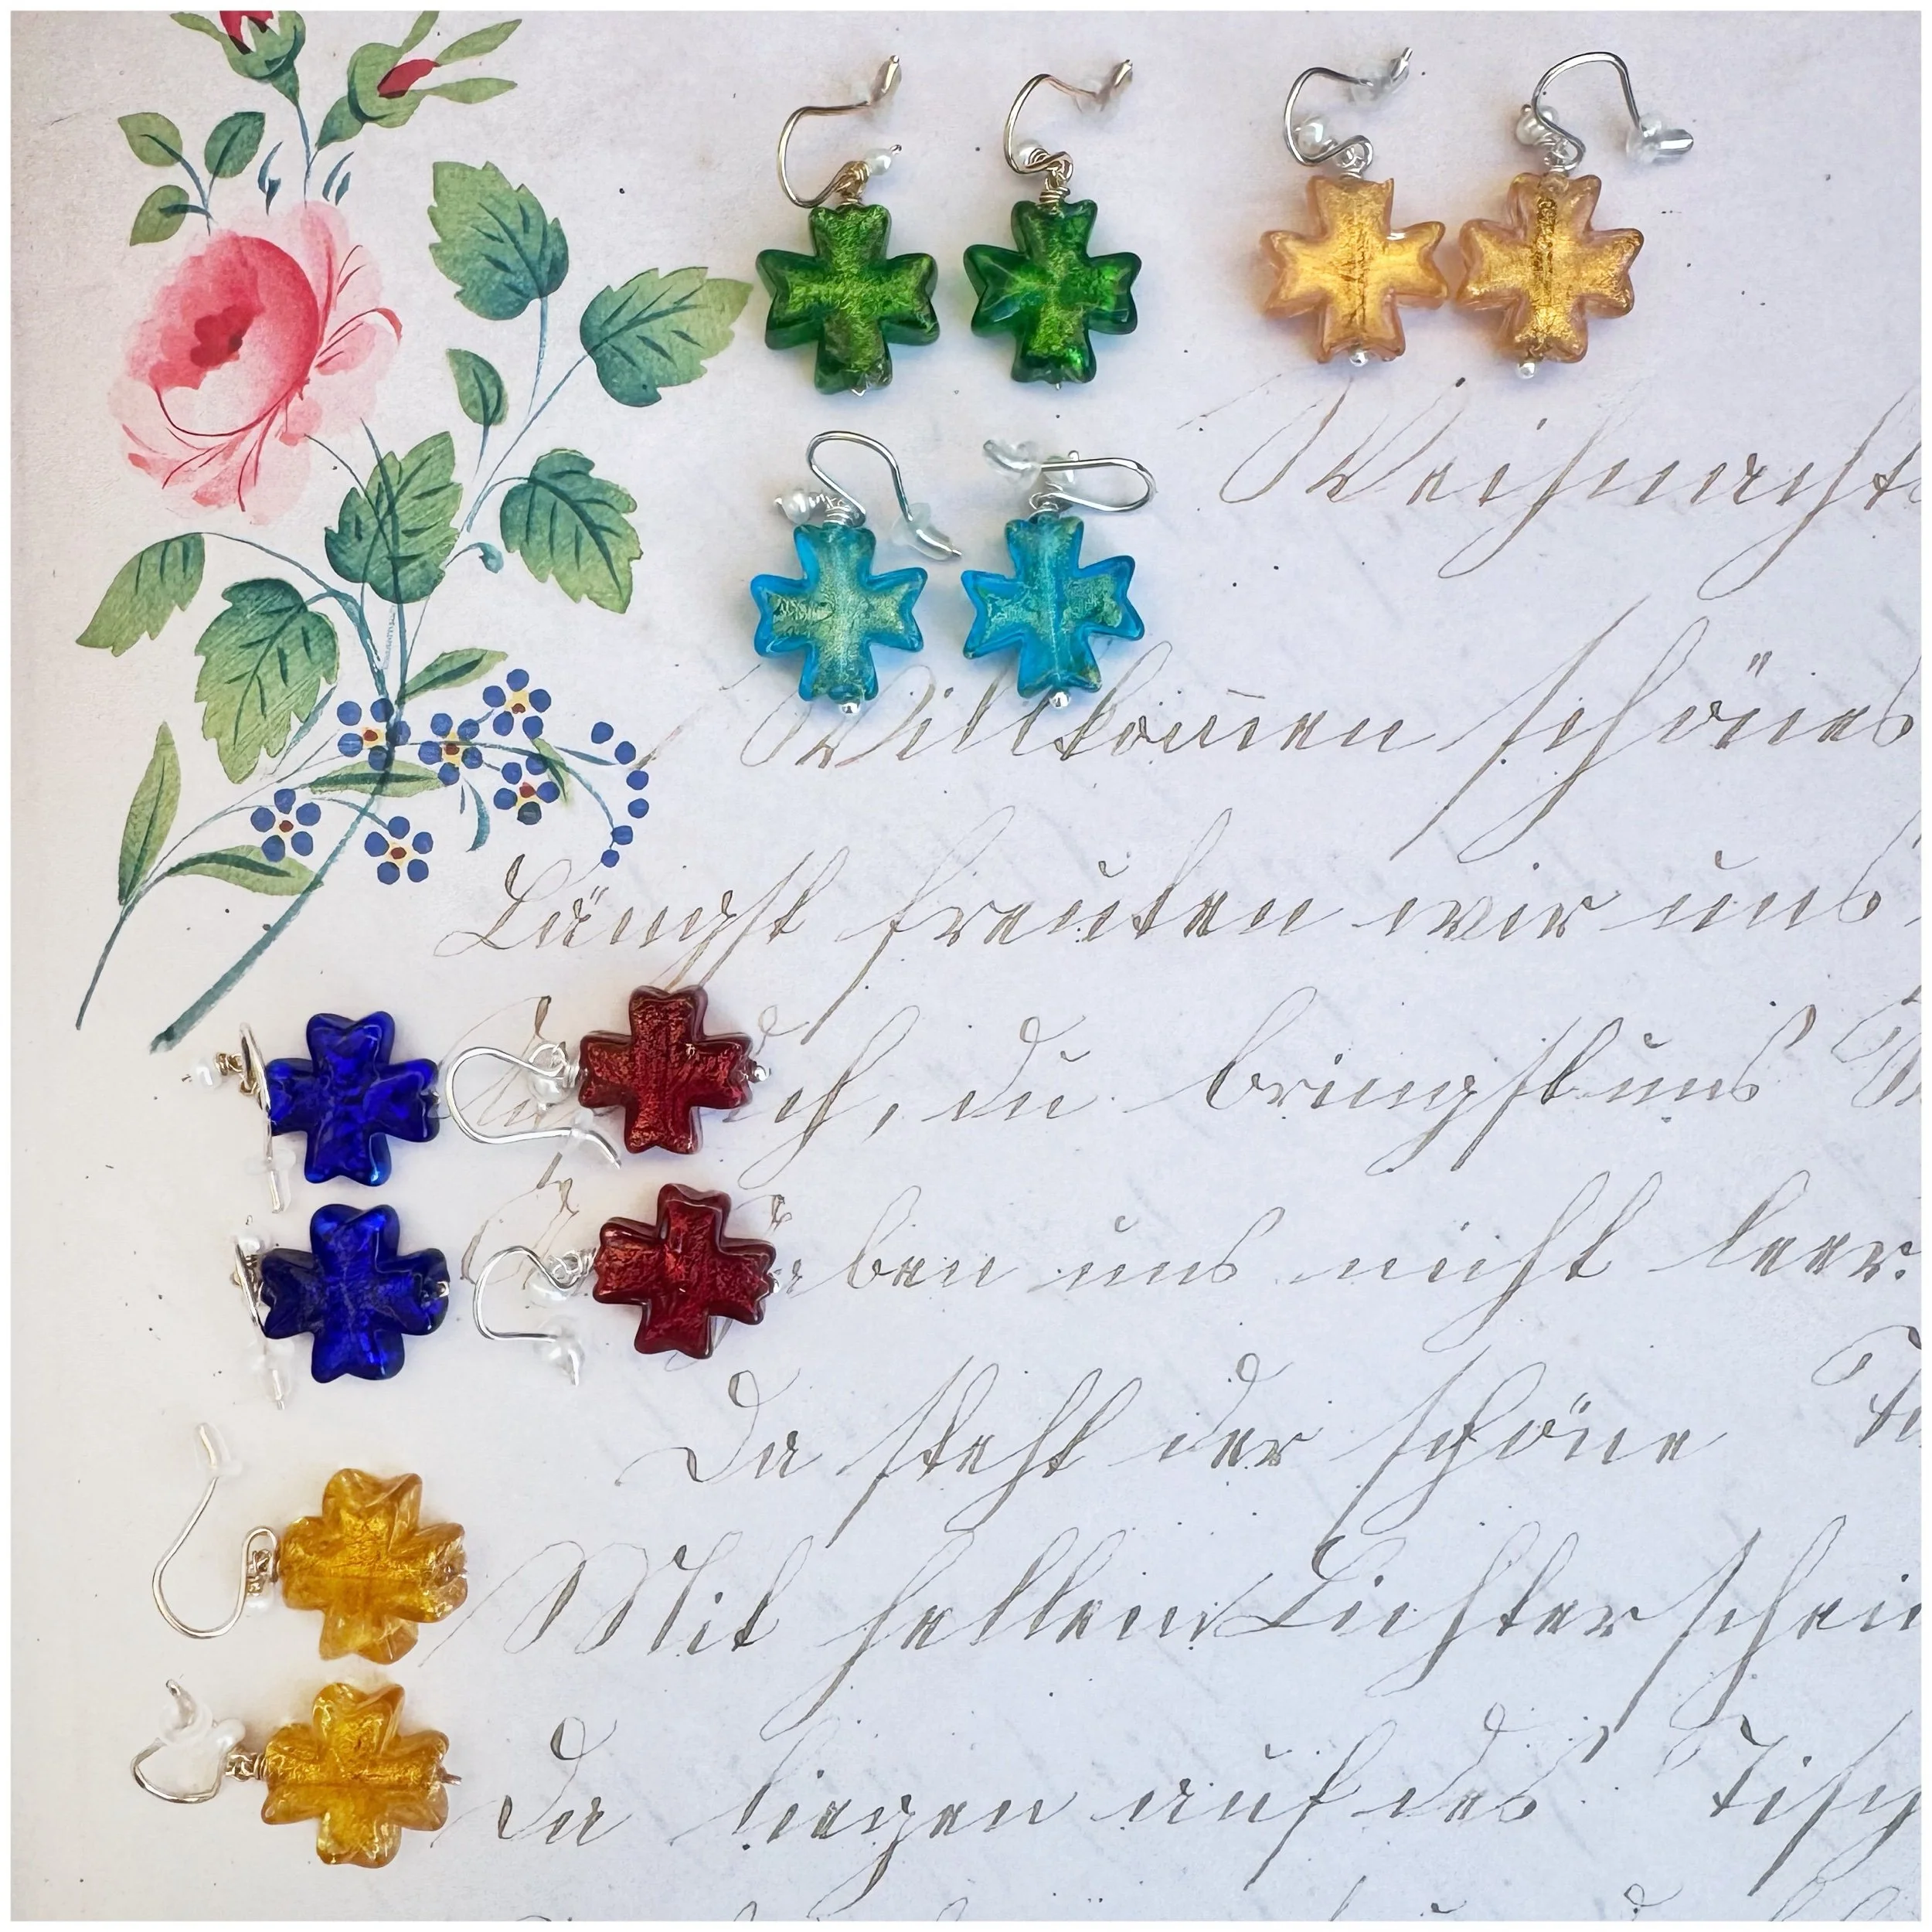 Weihnachts
Willkom̄en schönes
Längst freuten wir uns
ch, du bringst uns
aben uns nicht leer.
Da steht der schöne
Mit hellen Lichter schei
Da liegen auf des Tisch